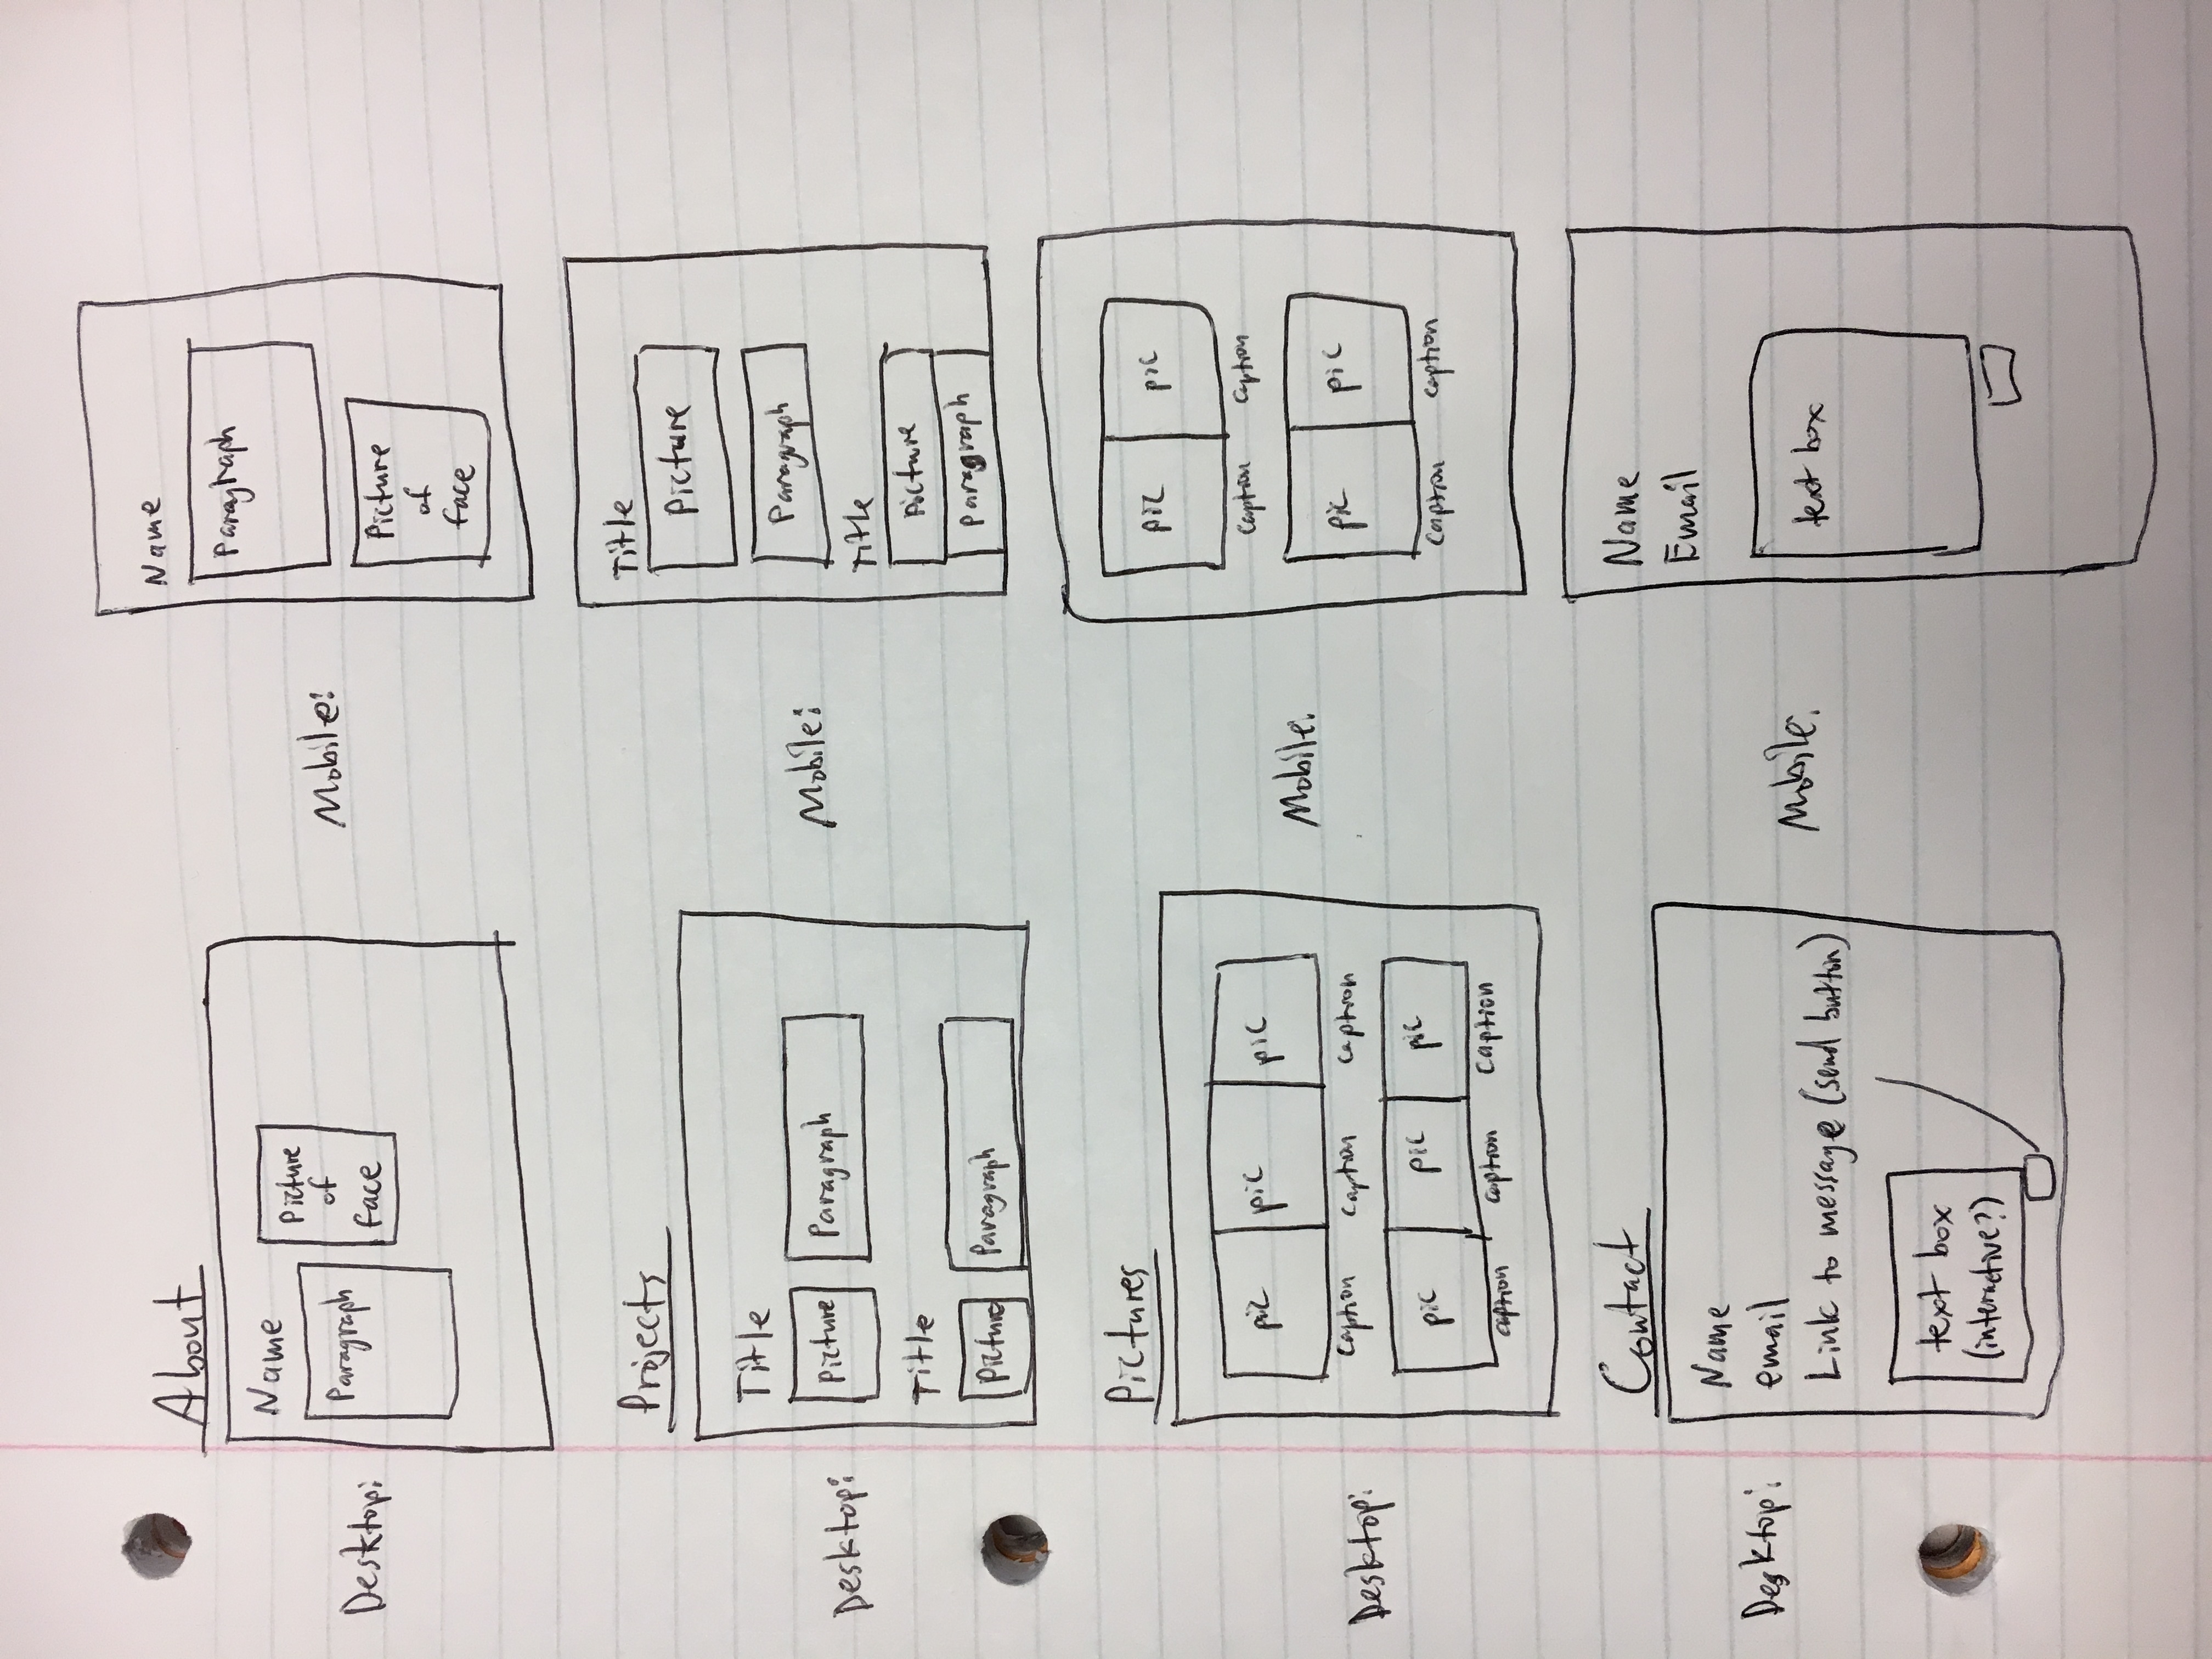 About
Desktop:
Name
Paragraph
Picture
of
face
Mobile:
Name
Paragraph
Picture
of
face
Projects
Desktop:
Title
Picture
Paragraph
Title
Picture
Paragraph
Mobile:
Title
Picture
Paragraph
Title
Picture
Paragraph
Pictures
Desktop:
pic pic pic
caption caption caption
pic pic pic
caption caption Caption
Mobile:
pic pic
caption caption
pic pic
caption caption
Contact
Desktop:
Name
email
Link to message (send button)
text box
(interactive?)
Mobile:
Name
Email
text box